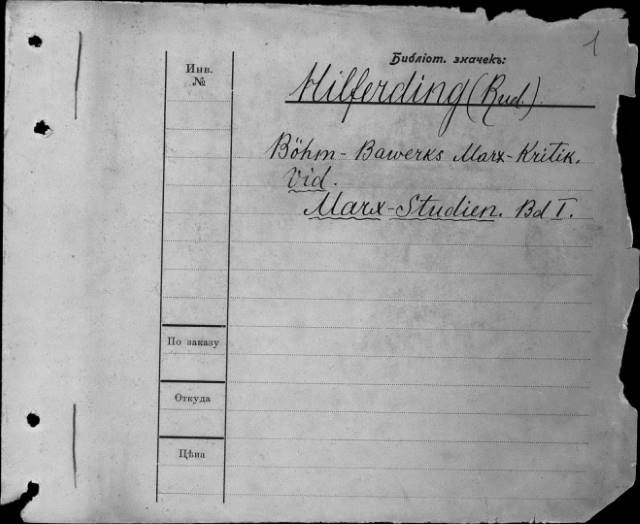 1
Библіот. значекъ:
Инв.
№
Hilferding (Rud.)
Böhm-Bawerks Marx-Kritik.
Vid.
Marx-Studien. Bd I.
По заказу
Откуда
Цѣна